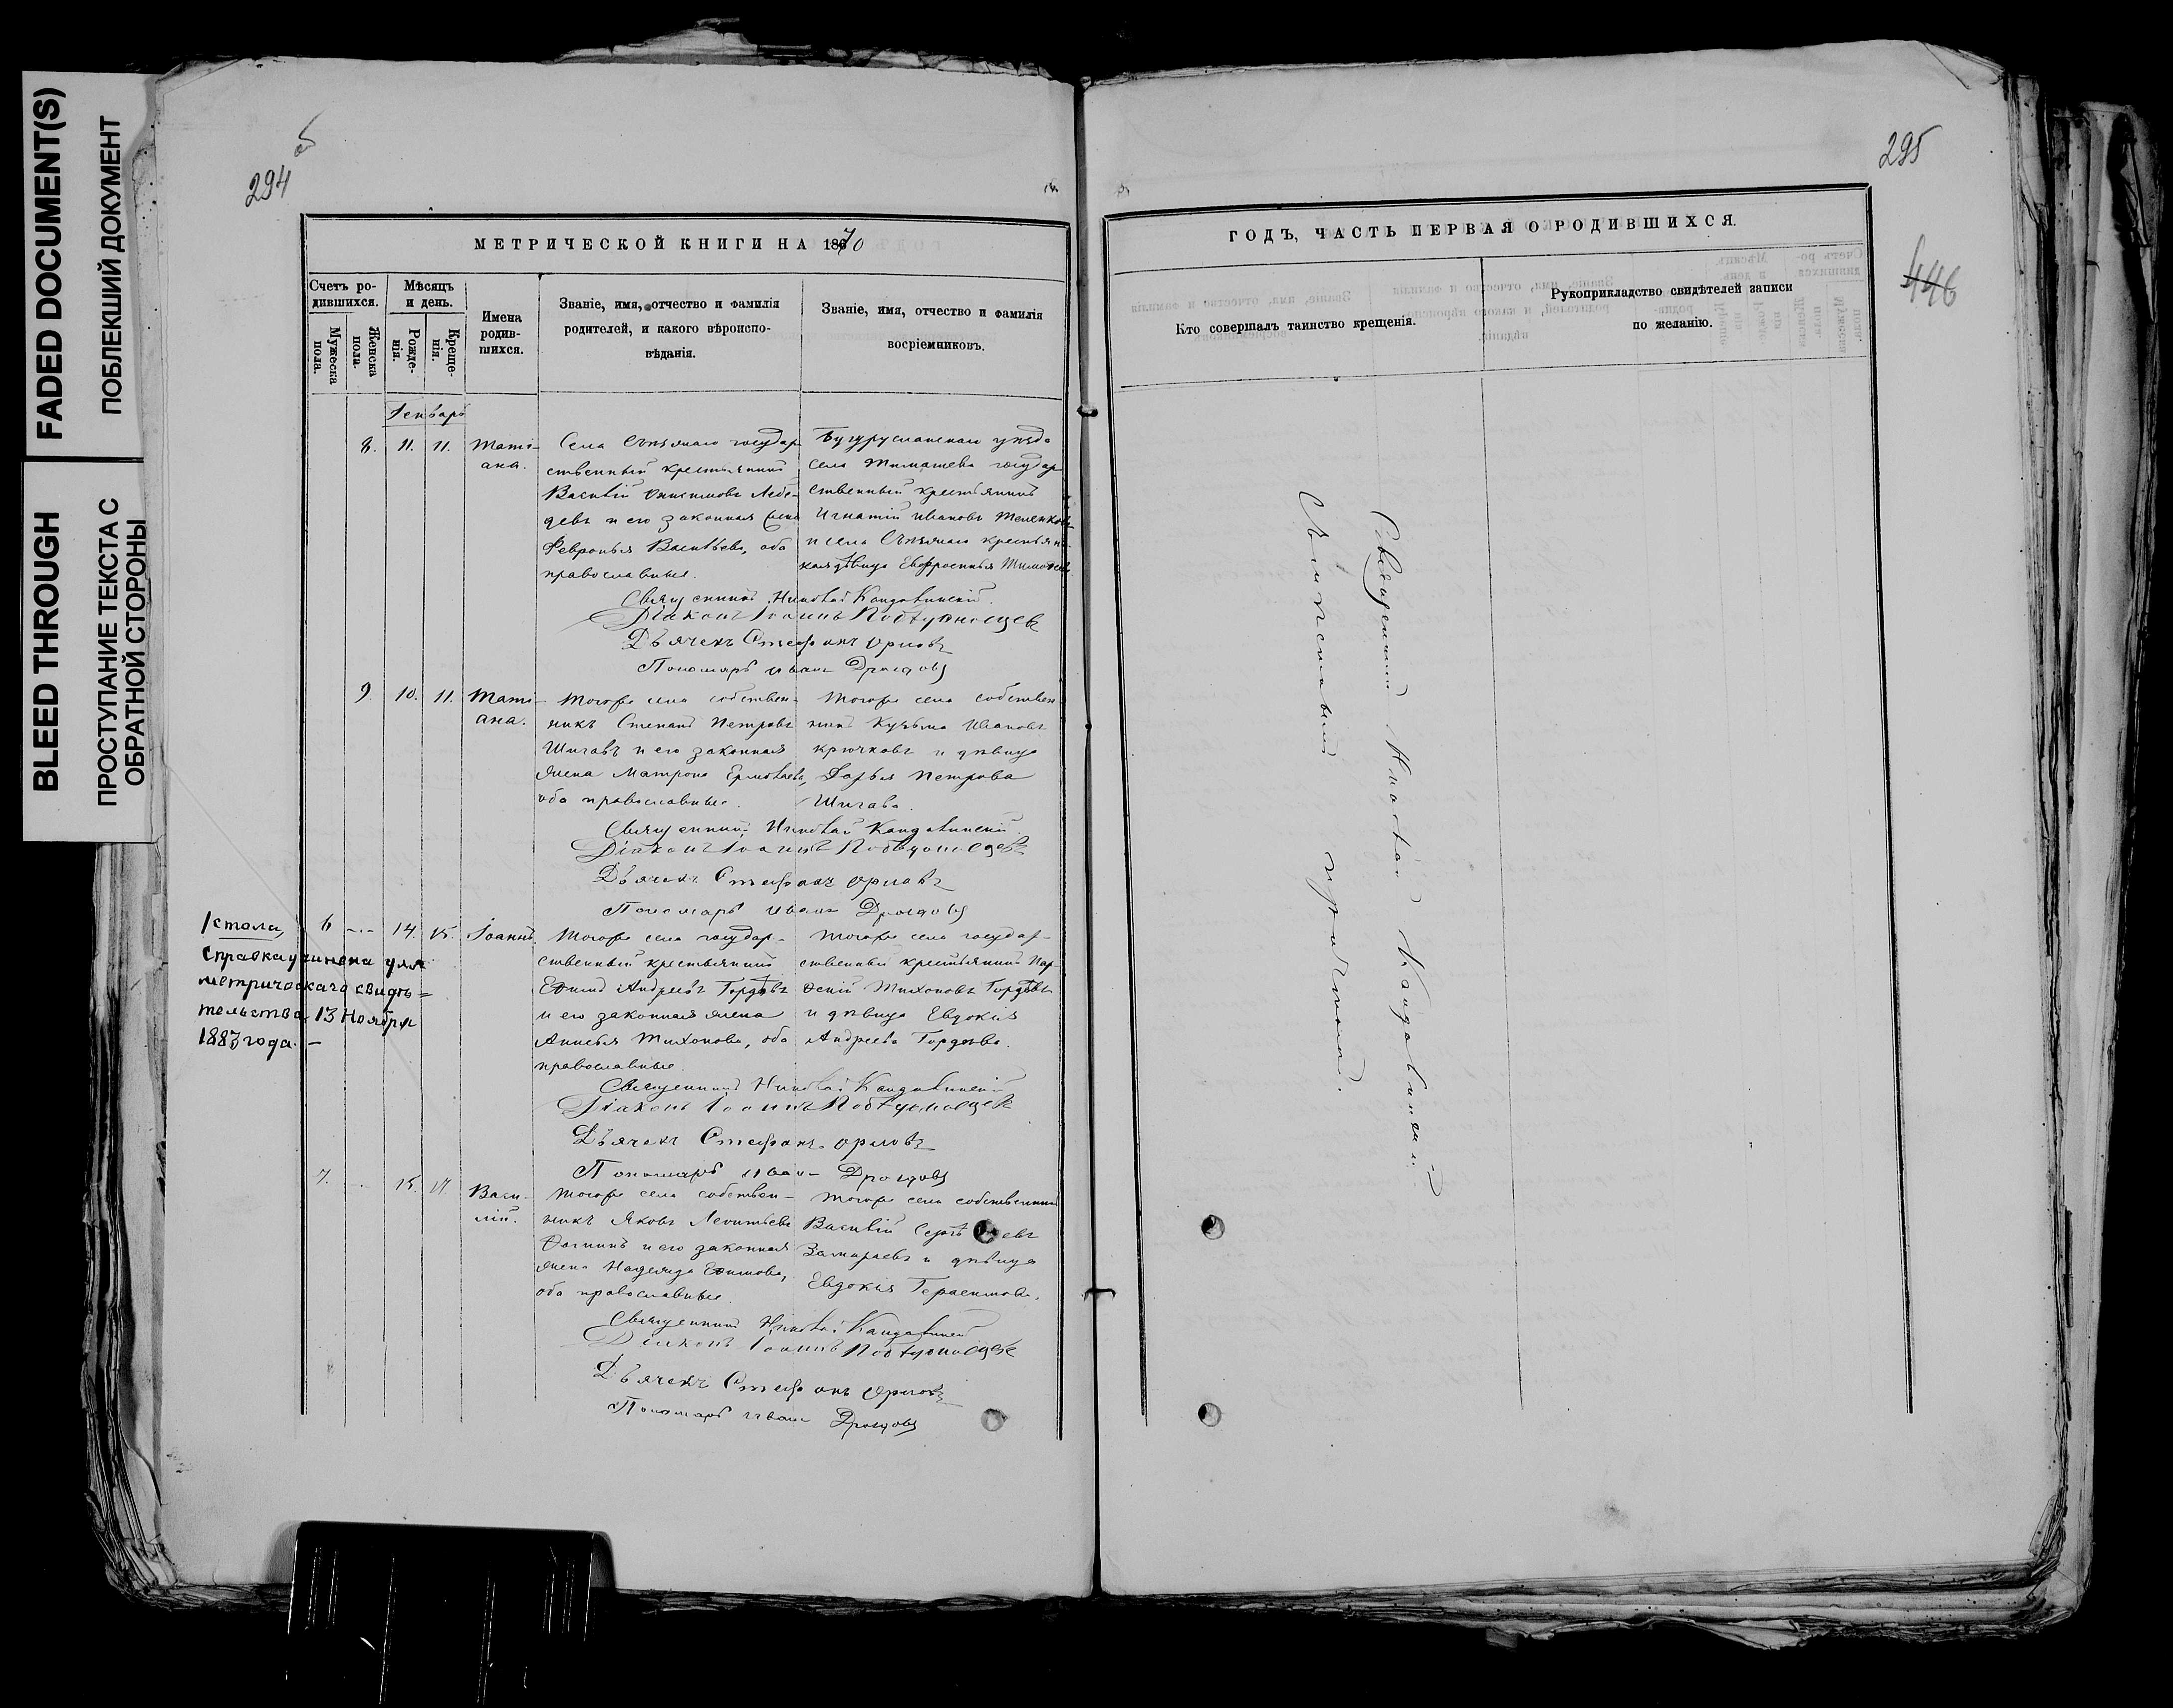 FADED DOCUMENT(S)
ПОБЛЕКШИЙ ДОКУМЕНТ
BLEED THROUGH
ПРОСТУПАНИЕ ТЕКСТА С
ОБРАТНОЙ СТОРОНЫ
294 об
МЕТРИЧЕСКОЙ КНИГИ НА 1870
Счетъ ро-
дившихся.
Мужеска
пола.
Женска
пола.
Мѣсяцъ
и день.
Рожде-
нія.
Креще-
нія.
Имена
родив-
шихся.
Званіе, имя, отчество и фамилія
родителей, и какого вѣроиспо-
вѣданія.
Званіе, имя, отчество и фамилія
воспріемниковъ.
Январь
8. 11. 11. Тати-
ана.
Села государ-
ственный крестьянинъ
Василій Онисимовъ Лебе-
девъ и его законная жена
Февронья Васильева, оба
православные.
Бугурусланскаго уѣзда
села Тимашева государ-
ственный крестьянинъ
Игнатій Ивановъ
и села крестьян-
ская дѣвица Евфросинья
Священникъ Николай Кандалинскій
Діаконъ Іоаннъ Побѣдоносцевъ
Дьячекъ Стефанъ Орловъ
Пономарь Иванъ Дроздовъ
9. 10. 11. Тати-
ана.
Тогоже села собствен-
никъ Степанъ Петровъ
Шигаевъ и его законная
жена Матрона Ермолаева,
оба православные.
Тогоже села собствен-
никъ Кузьма Ивановъ
Крючковъ и дѣвица
Дарья Петрова
Шигаева.
Священникъ Николай Кандалинскій
Діаконъ Іоаннъ Побѣдоносцевъ
Дьячекъ Стефанъ Орловъ
Пономарь Иванъ Дроздовъ
1 стола,
Справка учинена для
метрическаго свидѣ=
тельства 13 Ноября
1883 года. –
6 -.- 14. 15. Іоаннъ.
Тогоже села государ-
ственный крестьянинъ
Ефимъ Андреевъ Гордѣевъ
и его законная жена
Анисья Тихонова, оба
православные.
Тогоже села государ-
ственный крестьянинъ Пар-
феній Тихоновъ Гордѣевъ
и дѣвица Евдокія
Андреева Гордѣева.
Священникъ Николай Кандалинскій
Діаконъ Іоаннъ Побѣдоносцевъ
Дьячекъ Стефанъ Орловъ
Пономарь Иванъ Дроздовъ
7. . 15. 17 Васи-
лій.
Тогоже села собствен-
никъ Яковъ Леонтьевъ
Фоминъ и его законная
жена Надежда Ефимова,
оба православные.
Тогоже села собственникъ
Василій Сергѣевъ
Замараевъ и дѣвица
Евдокія Герасимова.
Священникъ Николай Кандалинскій
Діаконъ Іоаннъ Побѣдоносцевъ
Дьячекъ Стефанъ Орловъ
Пономарь Иванъ Дроздовъ
295
446
ГОДЪ, ЧАСТЬ ПЕРВАЯ О РОДИВШИХСЯ.
Кто совершалъ таинство крещенія.
Рукоприкладство свидѣтелей записи
по желанію.
Священникъ Николай Кандалинскій
причтомъ.